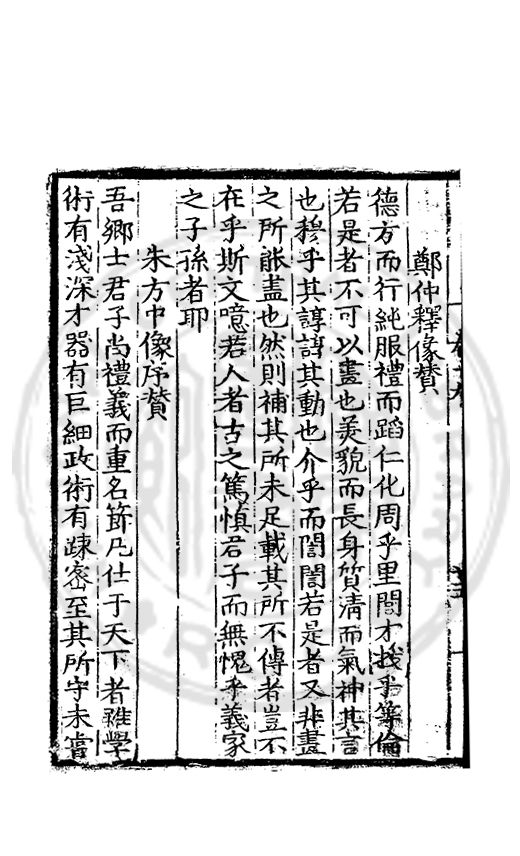 鄭仲釋像贊
德方而行純服禮而蹈仁化周乎里閭才拔乎等倫
若是者不可以畫也羙貌而長身質淸而氣神其言
也穆乎其諄諄其動也介乎而誾誾若是者又非畫
之所能盡也然則補其所未足載其所不傳者豈不
在乎斯文噫若人者古之篤愼君子而無愧乎義家
之子孫者耶
朱方中像序贊
吾鄉士君子尚禮義而重名節凡仕于天下者雖學
術有淺深才器有巨細政術有踈密至其所守未甞